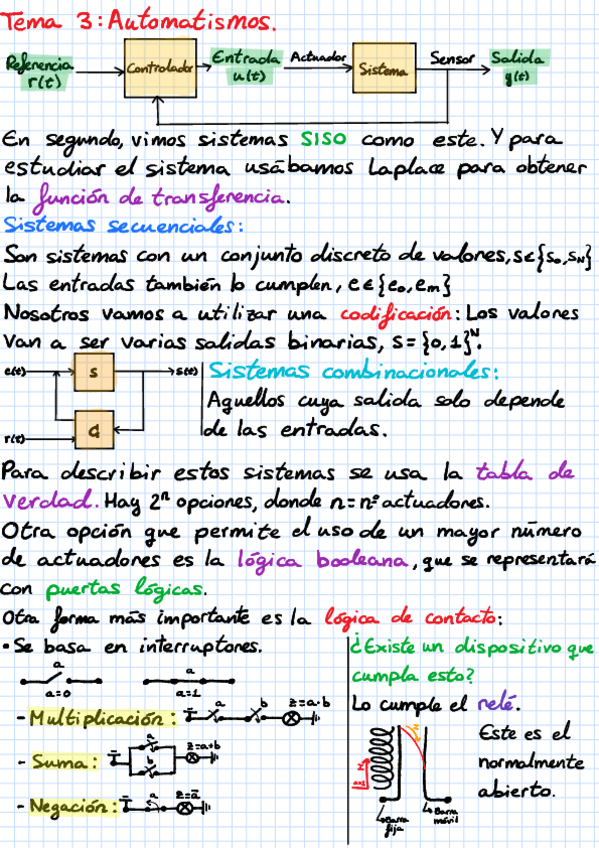 Tema 3: Automatismos.
Referencia r(t) Controlador Entrada u(t) Actuador Sistema Sensor Salida y(t)
En segundo, vimos sistemas SISO como este. Y para
estudiar el sistema usábamos Laplace para obtener
la función de transferencia.
Sistemas secuenciales:
Son sistemas con un conjunto discreto de valores, s∈{s₀,s_N}
Las entradas también lo cumplen, e∈{e₀,e_m}
Nosotros vamos a utilizar una codificación: Los valores
van a ser varias salidas binarias, S={0,1}ᴺ.
e(t) S s(t)
r(t) G
Sistemas combinacionales:
Aquellos cuya salida solo depende
de las entradas.
Para describir estos sistemas se usa la tabla de
verdad. Hay 2ⁿ opciones, donde n=nº actuadores.
Otra opción que permite el uso de un mayor número
de actuadores es la lógica booleana, que se representará
con puertas lógicas.
Otra forma más importante es la lógica de contacto:
• Se basa en interruptores.
a a
a=0 a=1
- Multiplicación: a b z=a·b
- Suma: a b z=a+b
- Negación: a z=a̅
¿Existe un dispositivo que
cumpla esto?
Lo cumple el relé.
Este es el
normalmente
abierto.
Barra fija
Barra móvil